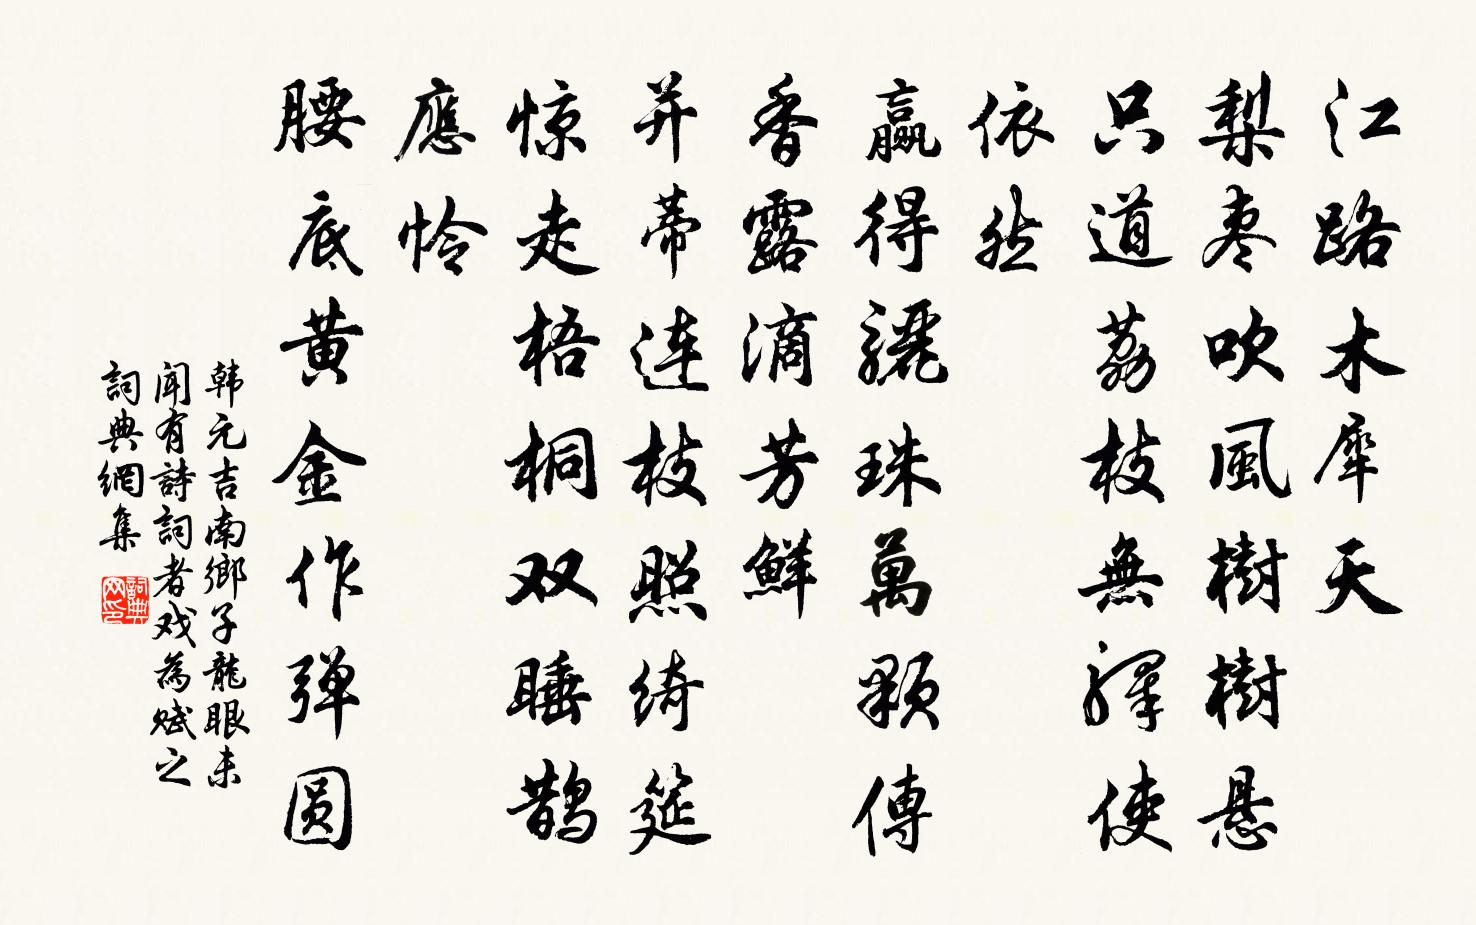 江路木犀天
梨枣吹風樹樹悬
只道荔枝無驛使
依然
贏得驪珠萬顆傳
香露滴芳鮮
并蒂连枝照绮筵
惊走梧桐双睡鹊
應怜
腰底黄金作弹圆
韩元吉南鄉子龍眼未
闻有詩詞者戏為赋之
詞典網集
詞典网印